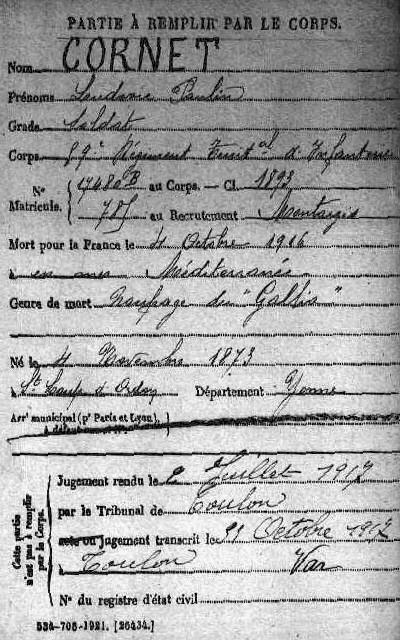 PARTIE À REMPLIR PAR LE CORPS.
Nom CORNET
Prénoms Paulin
Grade Soldat
Corps 89e Régiment Territal d'Infanterie
N° Matricule. { 17480B au Corps. — Cl. 1893
785 au Recrutement Montargis
Mort pour la France le 4 Octobre 1916
à en mer Méditerranée
Genre de mort Naufrage du "Gallia"
Né le 4 Novembre 1873
à St Loup d'Ordon Département Yonne
Arrt municipal (pr Paris et Lyon),
à défaut
Cette partie n'est pas à remplir par le Corps.
Jugement rendu le 2 Juillet 1917
par le Tribunal de Toulon
acte ou jugement transcrit le Octobre 1917
à Toulon Var
N° du registre d'état civil
534-708-1921. [26434.]